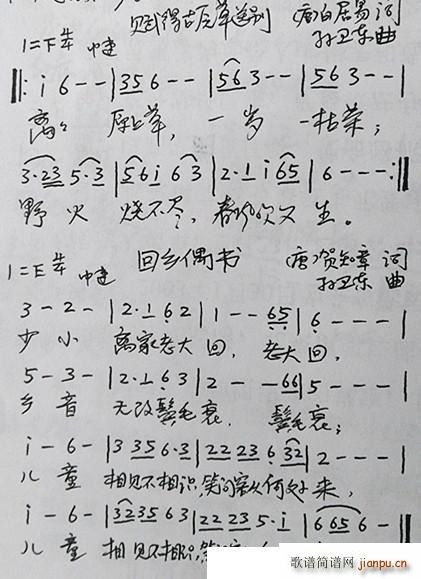 赋得古原草送别 唐 白居易 词
1=F 4/4 中速 孙卫东 曲
‖: i 6 - - | 35 6 - - | 56 3 - - | 56 3 - - |
离离 原上草, 一岁 一枯荣;
3·23 5·3 | 56i 63 | 2·1 i 65 | 6 - - - :‖
野 火 烧不尽, 春风吹又 生。
1=F 4/4 中速 回乡偶书 唐 贺知章 词
孙卫东 曲
3 - 2 - | 2·1 62 | 1 - - 65 | 6 - - - |
少 小 离家老大 回, 老大 回,
5 - 3 - | 2·1 63 | 2 - - 66 | 5 - - - |
乡 音 无改鬓毛 衰, 鬓毛 衰;
i - 6 - | 3 35 6·3 | 22 23 6 32 | 2 - - - |
儿 童 相见不相识,笑问客从何处 来,
i - 6 - | 3235 63 | 22 23 5·i | 6 65 6 - ‖
儿 童 相 见 不相识,笑
歌谱简谱网
jianpu.cn